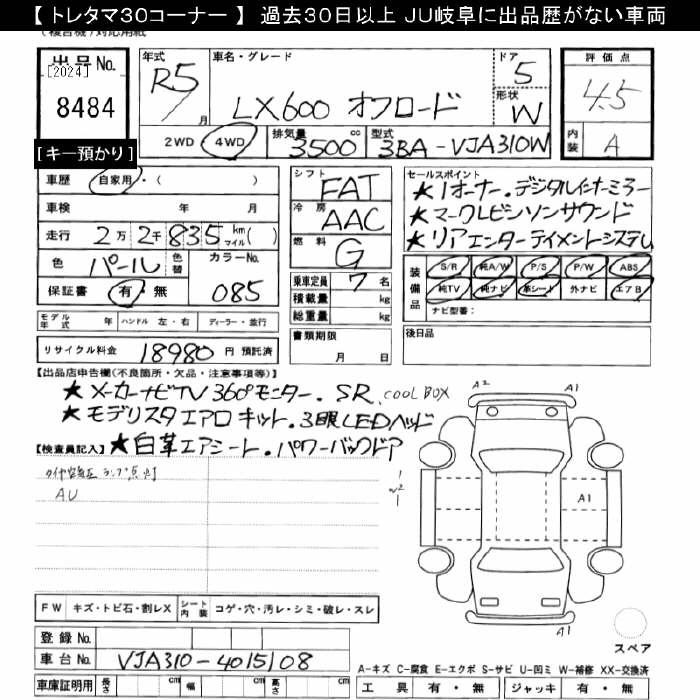 【 トレタマ30コーナー 】 過去30日以上 JU岐阜に出品歴がない車両
出品No.
[2024]
8484
[キー預かり]
年式 R5 月
車名・グレード
LX600 オフロード
ドア 5
形状 W
2WD・4WD
排気量 3500 cc
型式 3BA-VJA310W
評価点
4.5
内装 A
車歴 自家用・( )
車検 年 月
走行 2万 2千 835 km マイル( )
色 パール 色替 カラーNo. 085
保証書 有・無
モデル年式 年 ハンドル 左・右 ディーラー・並行
リサイクル料金 18980 円 預託済
シフト FAT
冷房 AAC
燃料 G
乗車定員 7 名
積載量 kg
総重量 kg
書類期限
月 日
セールスポイント
★1オーナー.デジタルインナーミラー
★マークレビンソンサウンド
★リアエンターテイメントシステム
装備品 S/R 純A/W P/S P/W ABS
純TV 純ナビ 革シート 外ナビ エアB
ナビ型番:
後日品
【出品店申告欄(不良箇所・欠品・注意事項等)】
★メーカーナビTV360°モニター.SR.COOL BOX
★モデリスタエアロキット.3眼LEDヘッド
★白革エアシート.パワーバックドア
【検査員記入】
タイヤ空気圧ランプ点灯
AU
A2 A1
A1
A1
スペア
FW キズ・トビ石・割レX シート内装 コゲ・穴・汚レ・シミ・破レ・スレ
登録No.
車台No. VJA310-4015108
車庫証明用 長さ cm 幅 cm 高さ cm
A-キズ C-腐食 E-エクボ S-サビ U-凹ミ W-補修 XX-交換済
工具 有・無 ジャッキ 有・無